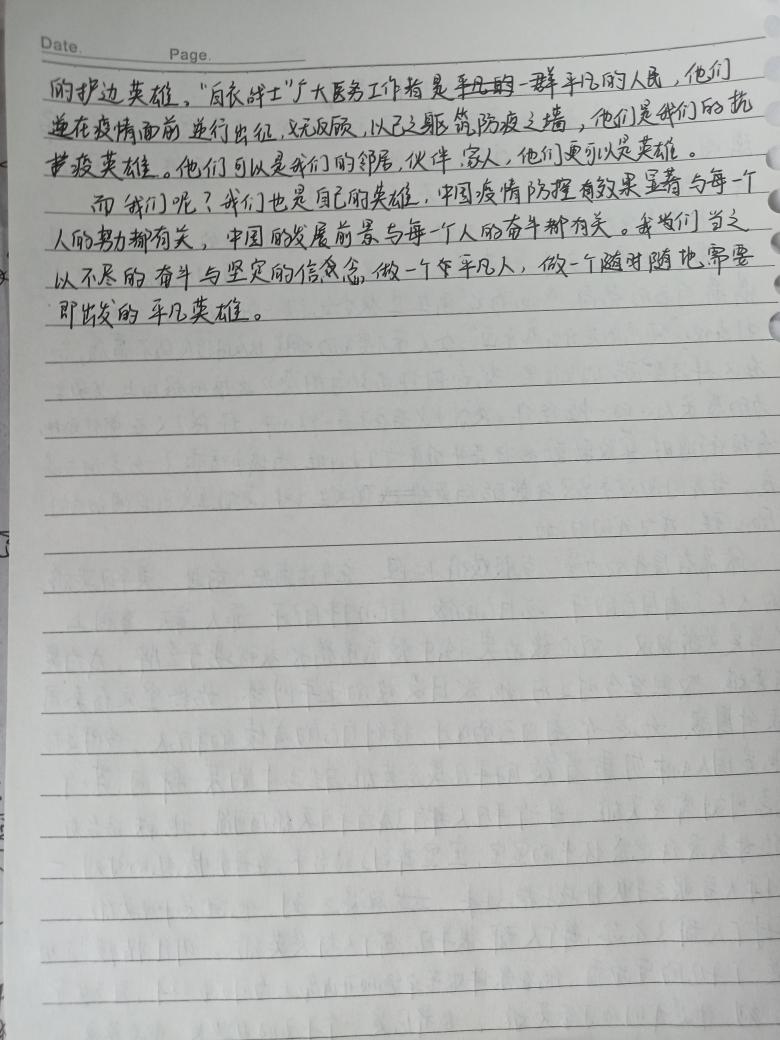 Date.
Page.
的护边英雄，“白衣战士”广大医务工作者是一群平凡的人民，他们
在疫情面前逆行出征，义无反顾，以己之躯筑防疫之墙，他们是我们的抗
疫英雄。他们可以是我们的邻居，伙伴，家人，他们更可以是英雄。
而我们呢？我们也是自己的英雄，中国疫情防控效果显著与每一个
人的努力都有关，中国的发展前景与每一个人的奋斗都有关。我们当之
以不尽的奋斗与坚定的信念做一个平凡人，做一个随时随地需要
即出发的平凡英雄。